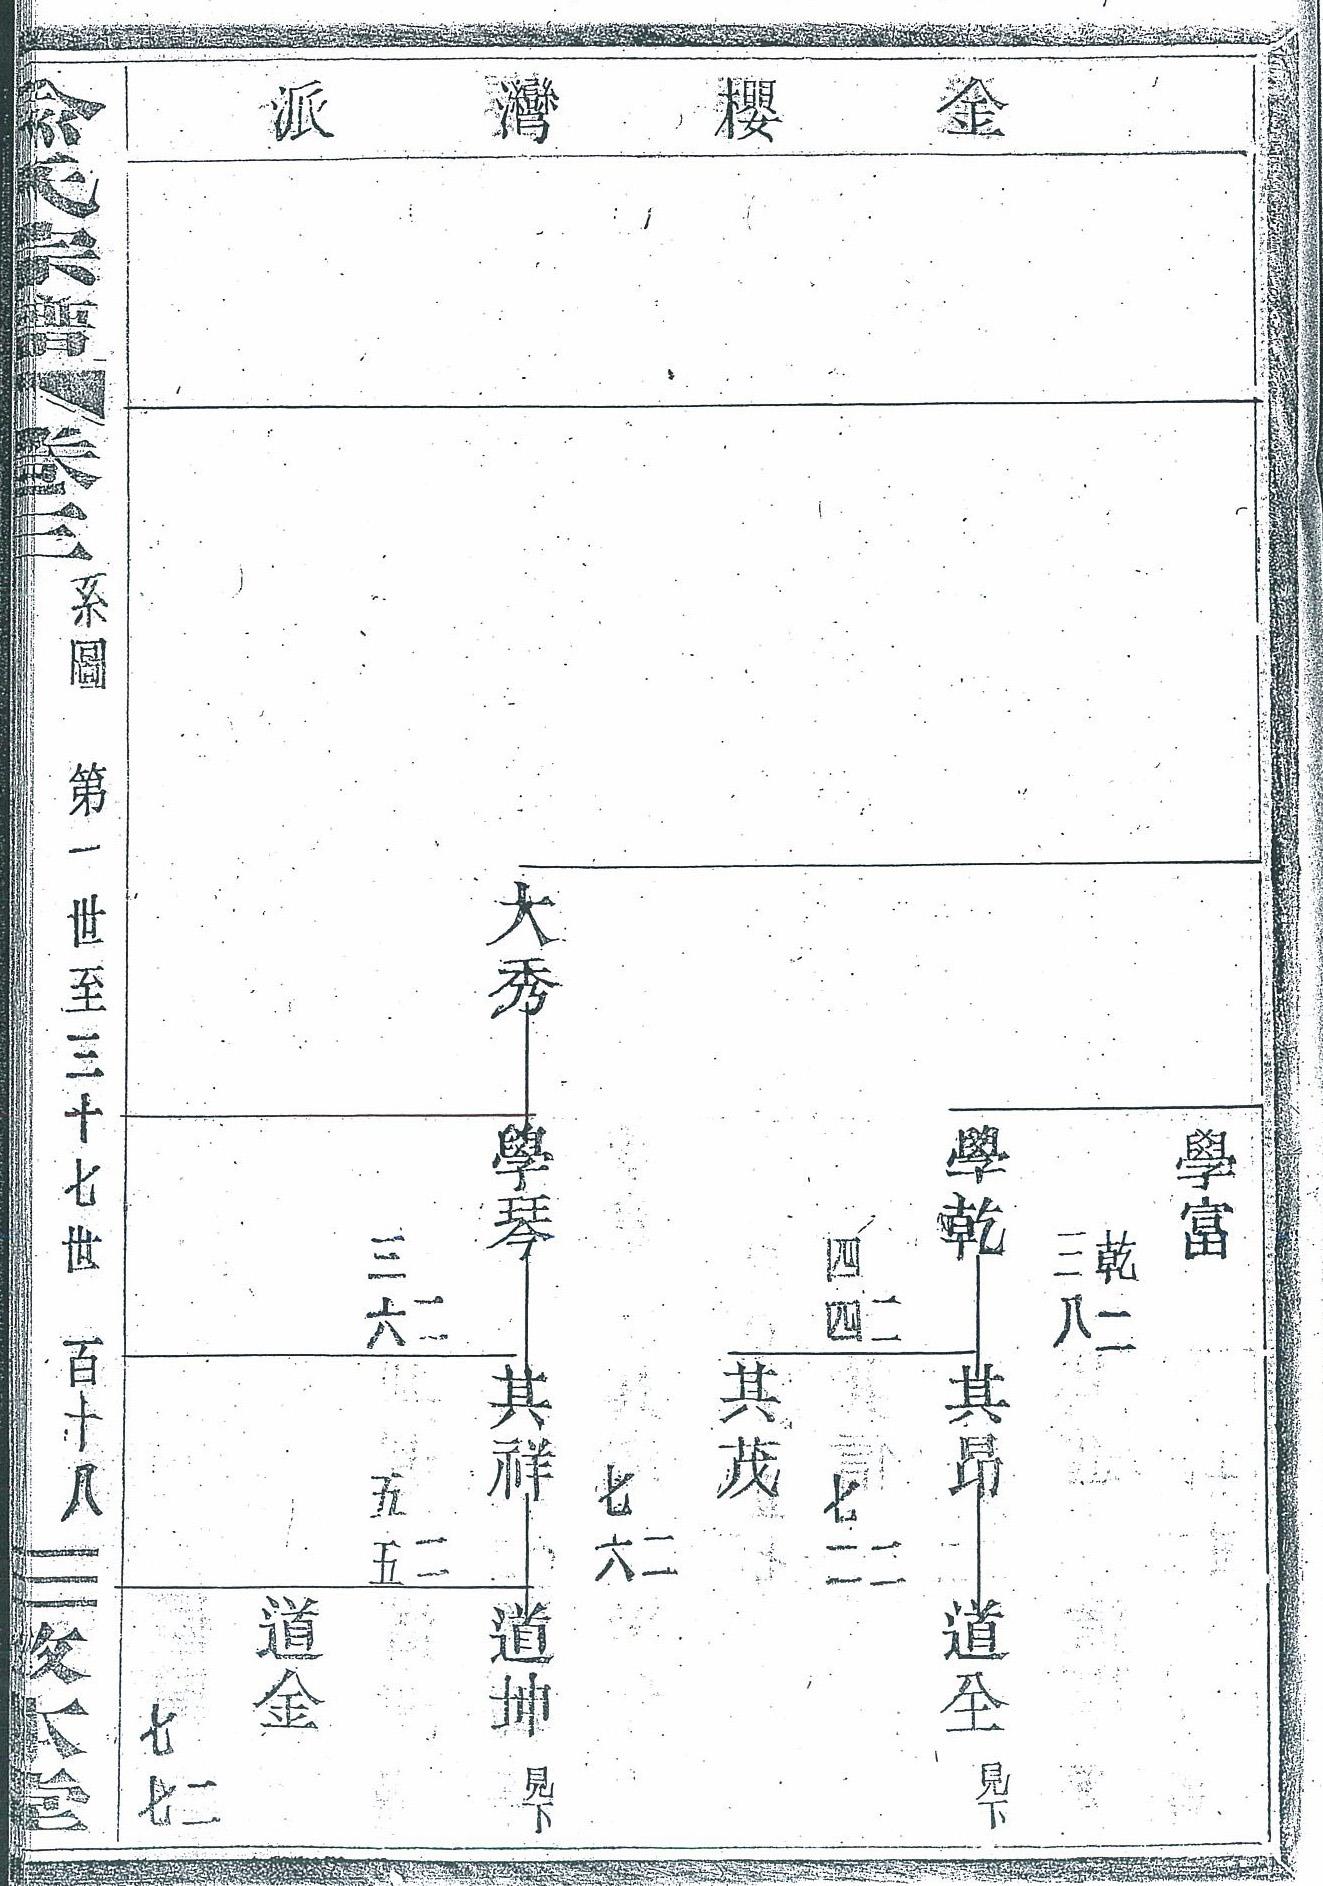 金櫻灣派
學富
乾二
三八
學乾
其昂
道全
見下
二
四四
二
七二
其茂
二
七六
大秀
學琴
其祥
道坤
見下
二
三六
二
五五
道金
二
七七
余氏宗譜 卷三 系圖 第一世至三十七世 百十八 本堂